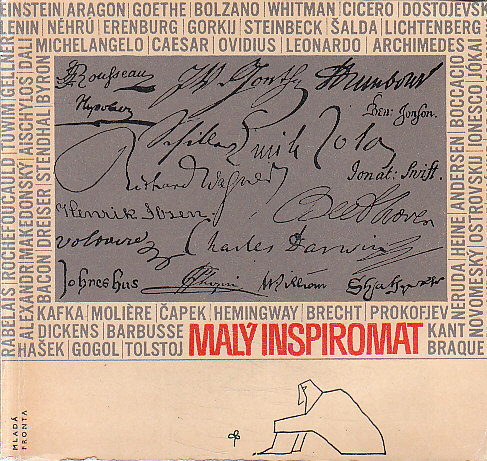 EINSTEIN|ARAGON|GOETHE|BOLZANO|WHITMAN|CICERO|DOSTOJEVSK
ENIN|NÉHRÚ|ERENBURG|GORKIJ|STEINBECK|ŠALDA|LICHTENBERG
MICHELANGELO|CAESAR|OVIDIUS|LEONARDO|ARCHIMEDES
RABELAIS|ROCHEFOUCAULD|TUWIM|GELLNER
ALEXANDR MAKEDONSKÝ|AISCHYLOS|DALI
BACON|DREISER|STENDHAL|BYRON
J.J. Rousseau
J.W. Goethe
Rembrandt
Ben: Jonson.
Schiller
Emile Zola
Richard Wagner
Jonat: Swift.
Henrik Ibsen.
Beethoven
Voltaire
Charles Darwin
Johnes hus
Chopin
William
Shakspere
NERUDA|HEINE|ANDERSEN|BOCCACIO
NOVOMESKÝ|OSTROVSKIJ|IONESCO|JOKAI
KAFKA|MOLIÈRE|ČAPEK|HEMINGWAY|BRECHT|PROKOFJEV
DICKENS|BARBUSSE
KANT
HAŠEK|GOGOL|TOLSTOJ
MALÝ INSPIROMAT
BRAQUE
MLADÁ
FRONTA